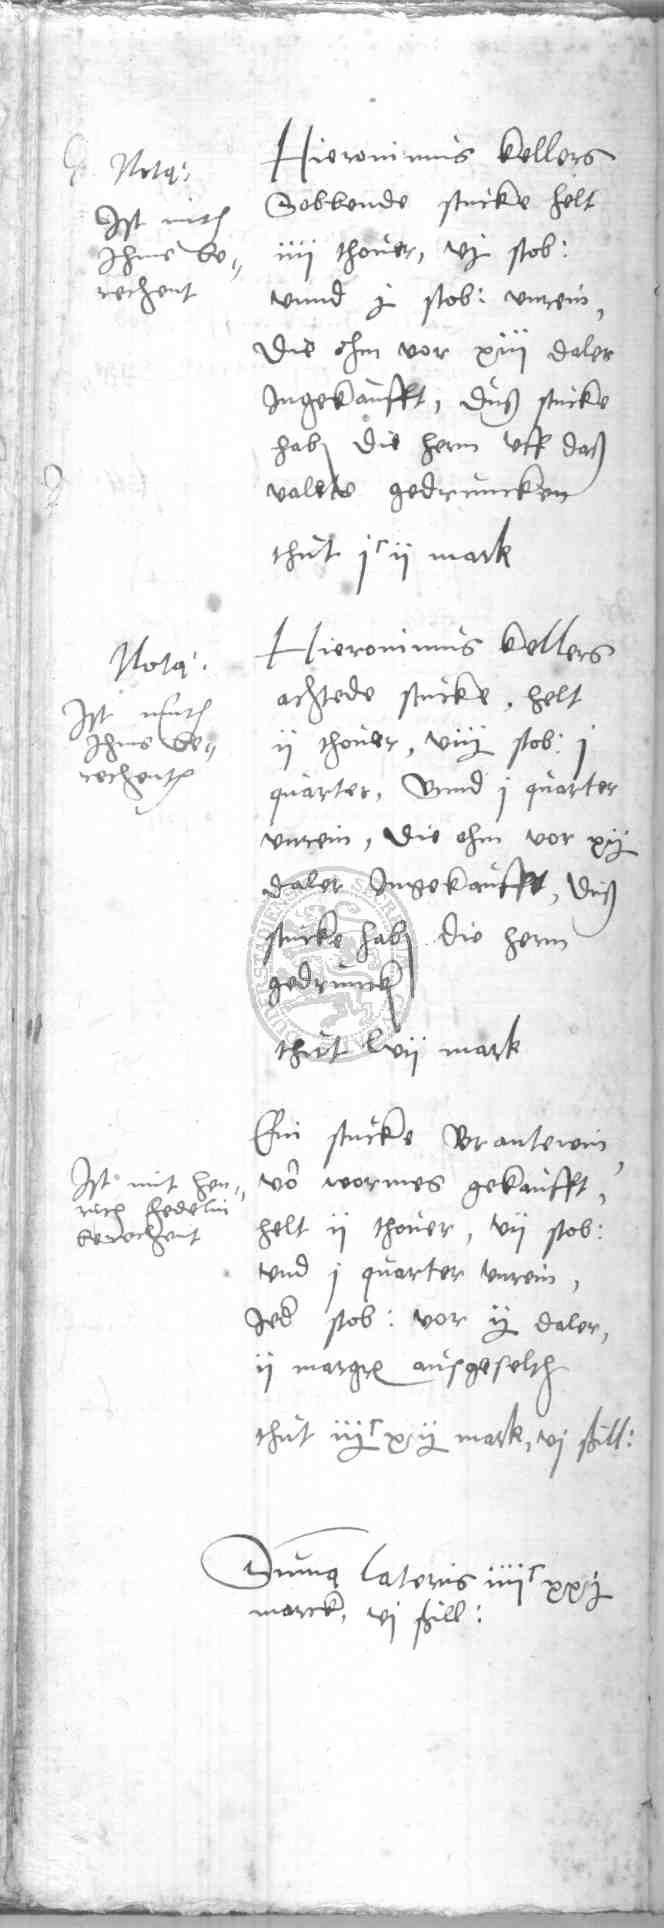 Nota:
Ist mith
Ihme be-
rechent
Hieronimus Kellers
Sobbende stucke helt
iiii thover, vj stob:
vnnd j stob: vnrein,
die ohm vor xiii daler
Ingekaufft, duß stucke
hab die hern vff daß
valete gedruncken
thut jc ii mark
Nota:
Ist mith
Ihme be-
rechent
Hieronimus Kellers
achtede stucke, helt
ii thover, viij stob: j
quarter, vnnd j quarter
vnrein, die ohm vor xij
daler Ingekaufft, duß
stucke hab die hern
gedrunck
thut lvii mark
Ist mit Hen-
rich Hedelin
berechent
Ein stucke Brantewin,
vo wormes gekaufft,
helt ii thover, vii stob:
vnd j quarter vnrein,
Jed stob: vor ij daler,
ii margr ausgeselth
thut iijc xij mark, vj ßill:
Suma lateris iiiic xxij
marck, vj ßill: